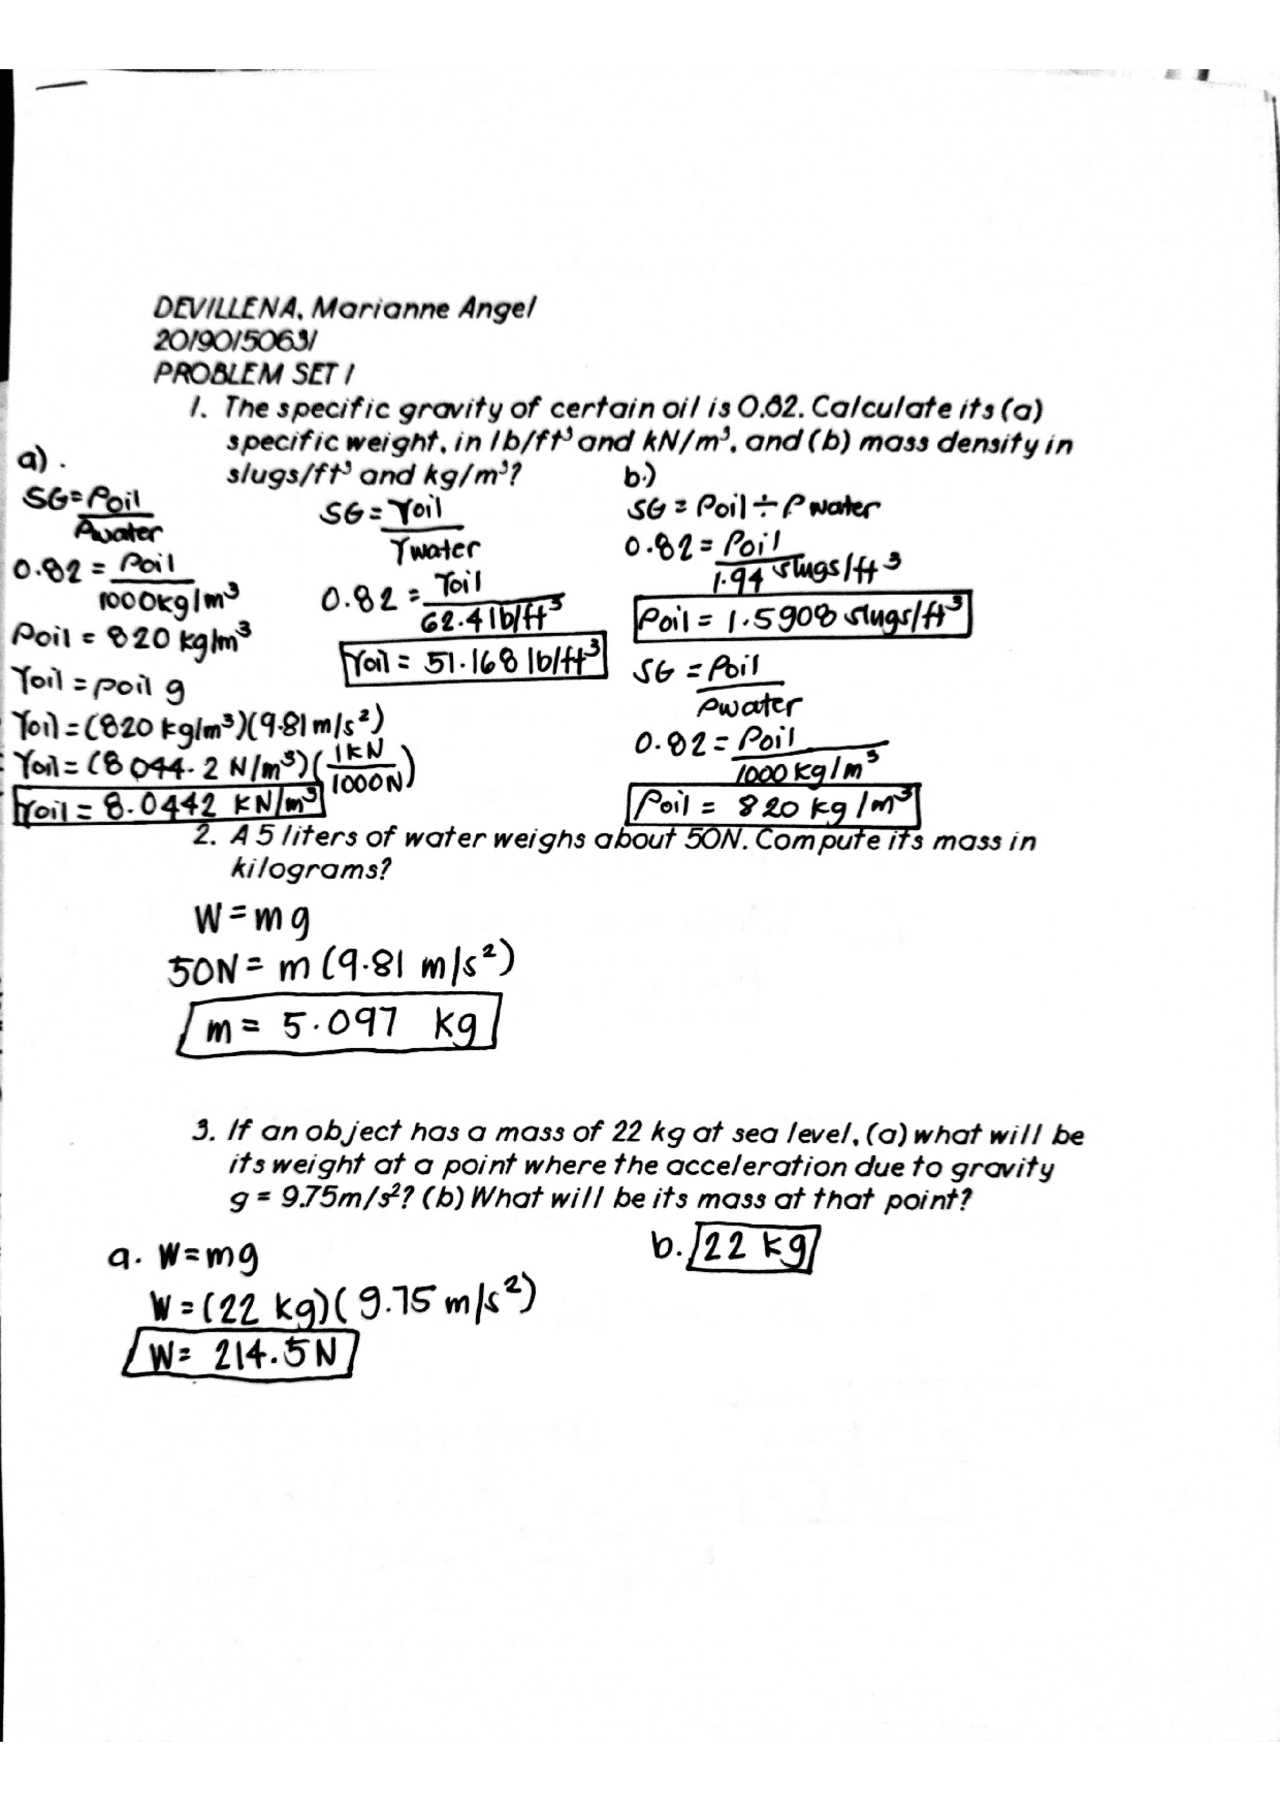 DEVILLENA, Marianne Angel
20190150631
PROBLEM SET 1
1. The specific gravity of certain oil is 0.82. Calculate its (a)
specific weight, in lb/ft³ and kN/m³, and (b) mass density in
slugs/ft³ and kg/m³?
a).
SG = ρoil / ρwater
0.82 = ρoil / 1000kg/m³
ρoil = 820 kg/m³
γoil = ρoil g
γoil = (820 kg/m³)(9.81 m/s²)
γoil = (8044.2 N/m³)(1KN / 1000N)
γoil = 8.0442 KN/m³
SG = γoil / γwater
0.82 = γoil / 62.4 lb/ft³
γoil = 51.168 lb/ft³
b.)
SG = ρoil ÷ ρwater
0.82 = ρoil / 1.94 slugs/ft³
ρoil = 1.5908 slugs/ft³
SG = ρoil / ρwater
0.82 = ρoil / 1000 kg/m³
ρoil = 820 kg/m³
2. A 5 liters of water weighs about 50N. Compute its mass in
kilograms?
W = mg
50N = m (9.81 m/s²)
m = 5.097 kg
3. If an object has a mass of 22 kg at sea level, (a) what will be
its weight at a point where the acceleration due to gravity
g = 9.75m/s²? (b) What will be its mass at that point?
a. W = mg
W = (22 kg)(9.75 m/s²)
W = 214.5 N
b. 22 kg